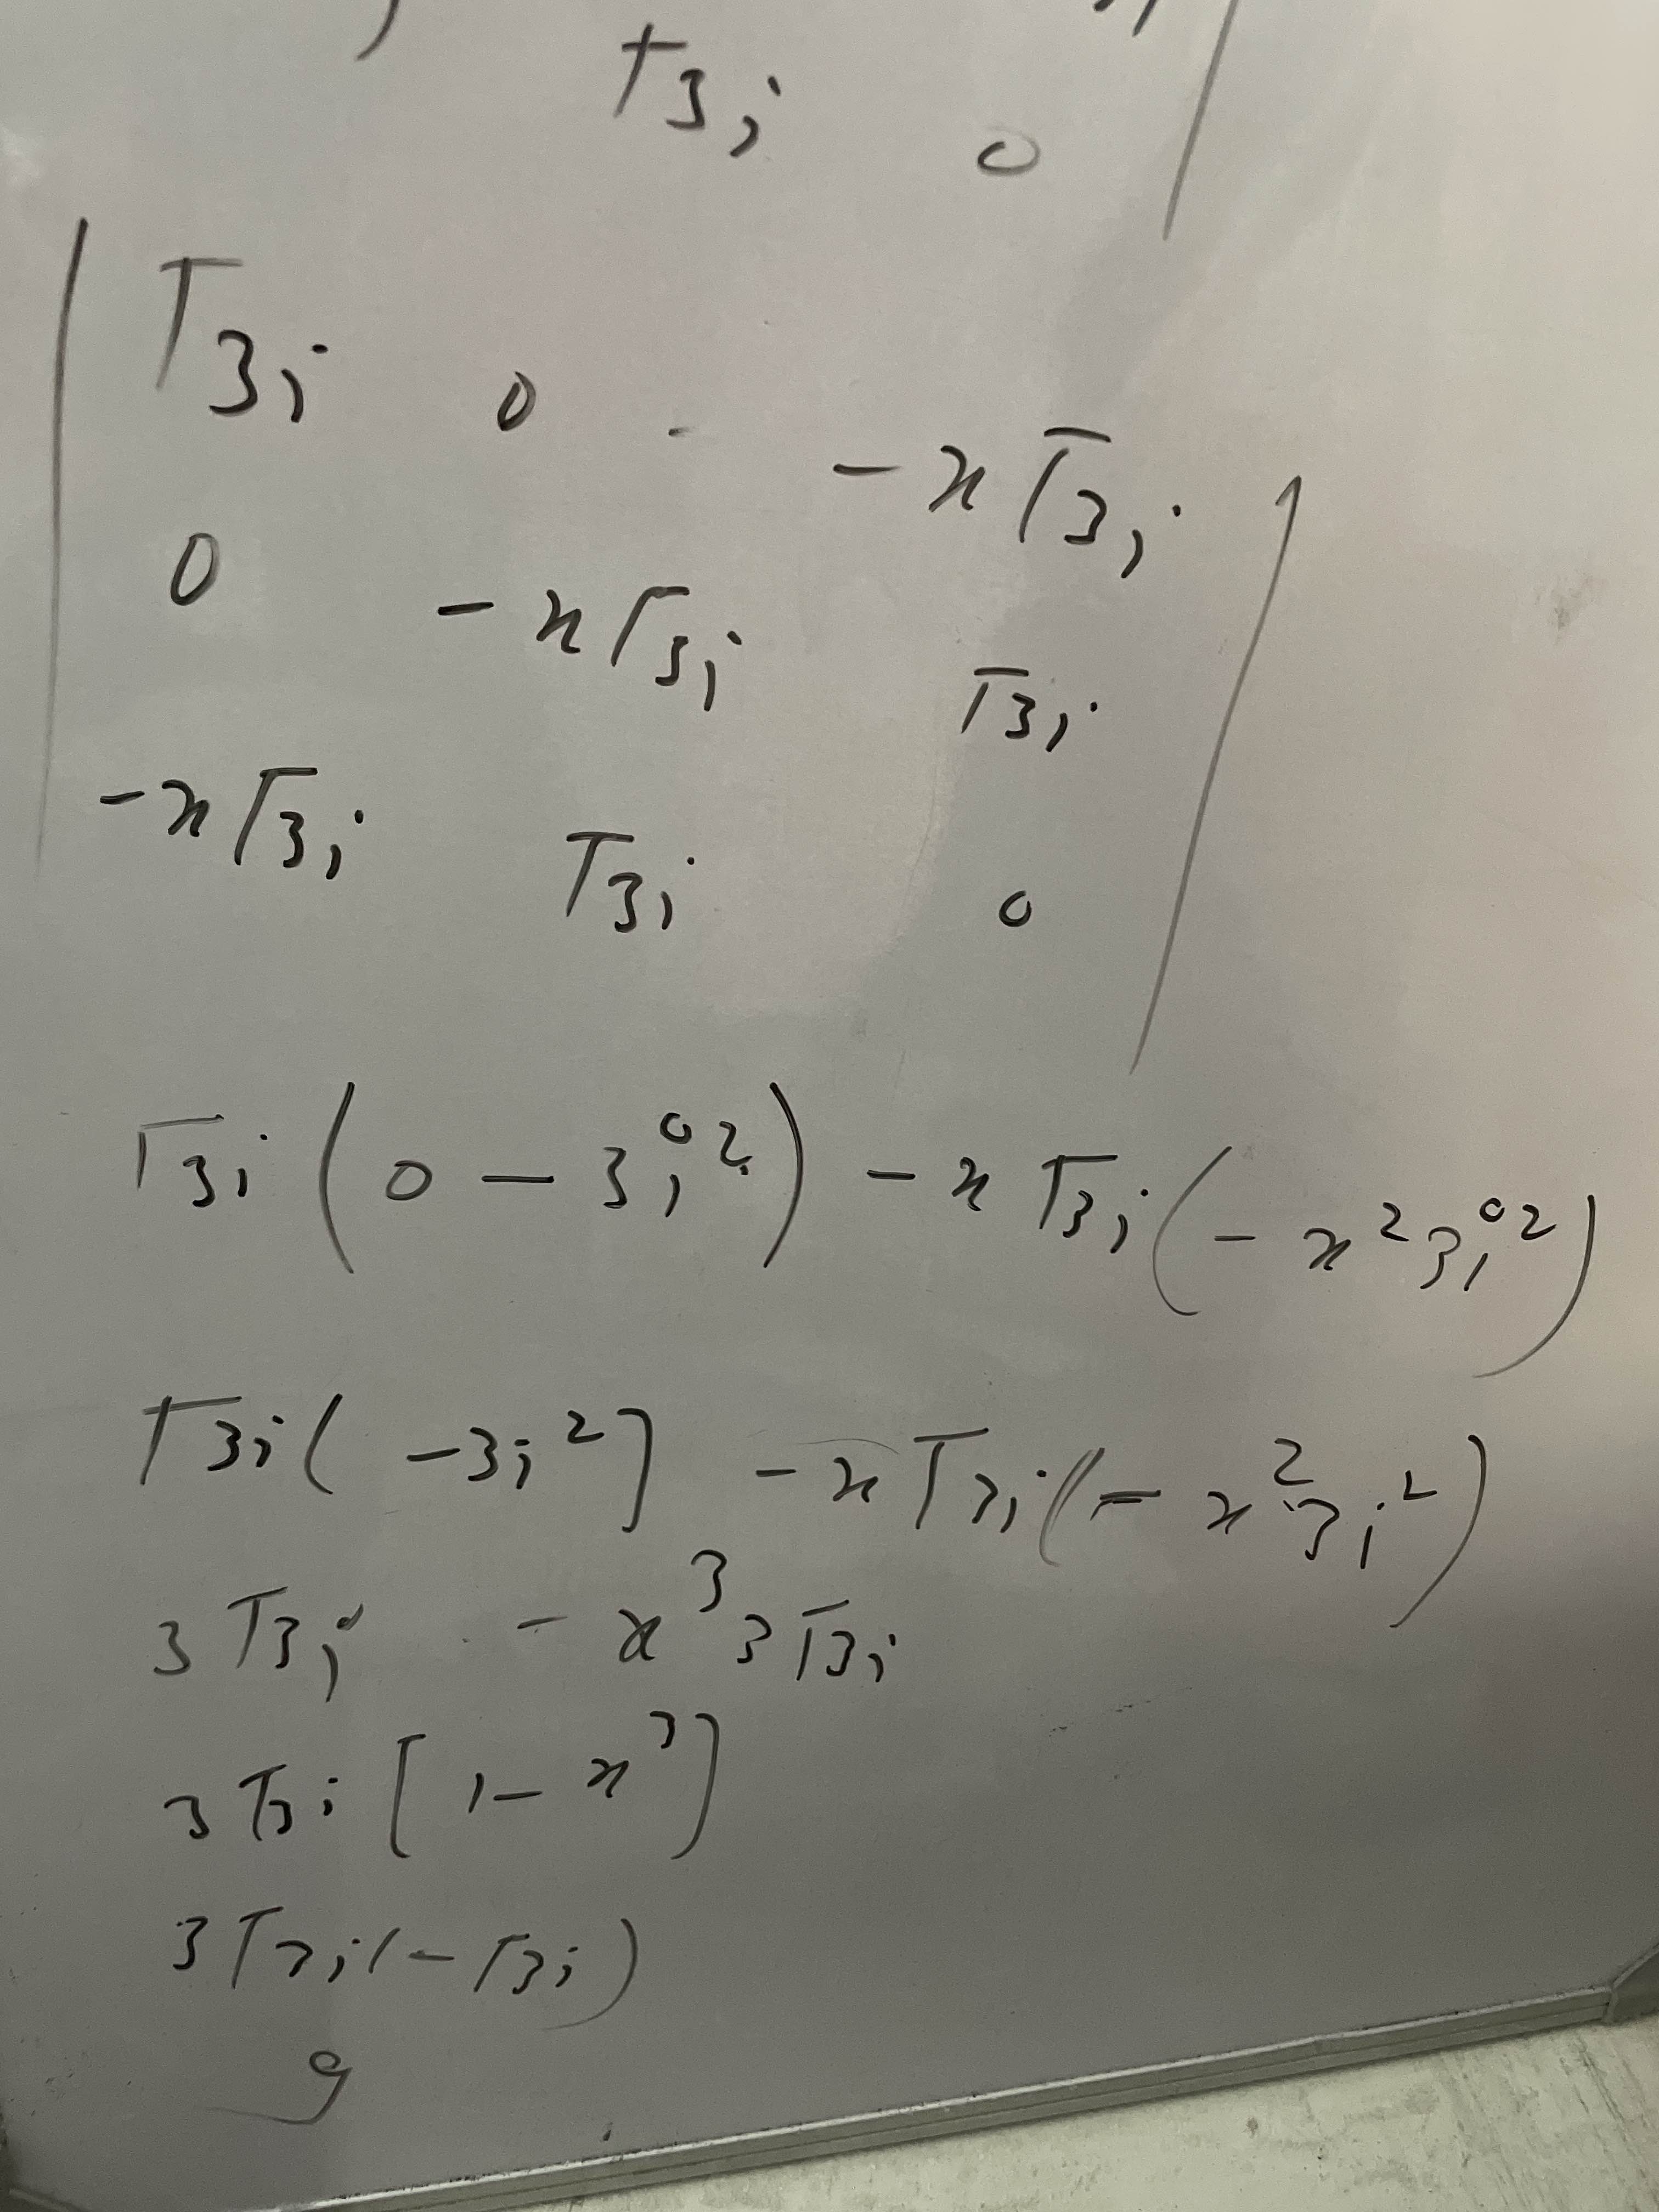 √3i 0
| √3i 0 -x√3i |
| 0 -x√3i √3i |
| -x√3i √3i 0 |
√3i (0 - 3i²) - x√3i (- x²3i²)
√3i ( -3i² ] - x√3i (- x²3i²)
3√3i - x³3√3i
3√3i [1 - x³]
3√3i (- √3i)
9